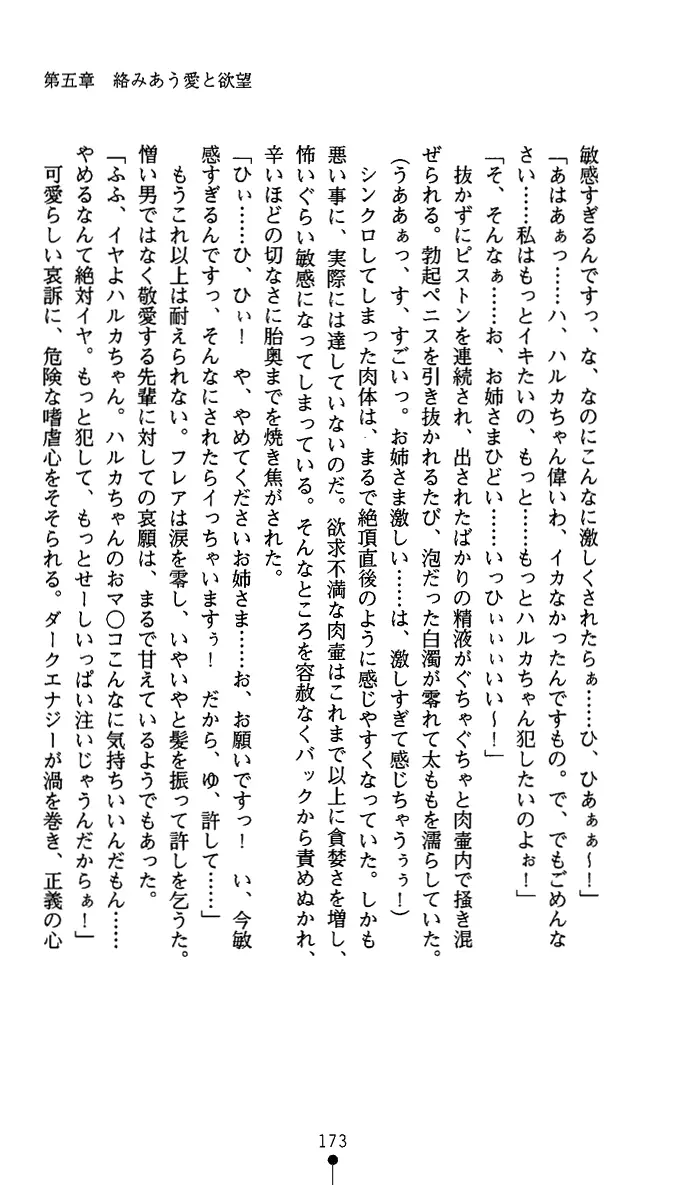 第五章　絡みあう愛と欲望
敏感すぎるんですっ、な、なのにこんなに激しくされたらぁ……ひ、ひあぁぁ～！」
「あはあぁっ……ハ、ハルカちゃん偉いわ、イカなかったんですもの。で、でもごめんな
さい……私はもっとイキたいの、もっと……もっとハルカちゃん犯したいのよぉ！」
「そ、そんなぁ……お、お姉さまひどい……いっひぃぃぃいい～！」
抜かずにピストンを連続され、出されたばかりの精液がぐちゃぐちゃと肉壷内で掻き混
ぜられる。勃起ペニスを引き抜かれるたび、泡だった白濁が零れて太ももを濡らしていた。
(うああぁっ、す、すごいっ。お姉さま激しい……は、激しすぎて感じちゃうぅぅ！)
シンクロしてしまった肉体は、まるで絶頂直後のように感じやすくなっていた。しかも
悪い事に、実際には達していないのだ。欲求不満な肉壷はこれまで以上に貪婪さを増し、
怖いぐらい敏感になってしまっている。そんなところを容赦なくバックから責めぬかれ、
辛いほどの切なさに胎奥までを焼き焦がされた。
「ひぃ……ひ、ひぃ！　や、やめてくださいお姉さま……お、お願いですっ！　い、今敏
感すぎるんですっ、そんなにされたらイっちゃいますぅ！　だから、ゆ、許して……」
もうこれ以上は耐えられない。フレアは涙を零し、いやいやと髪を振って許しを乞うた。
憎い男ではなく敬愛する先輩に対しての哀願は、まるで甘えているようでもあった。
「ふふ、イヤよハルカちゃん。ハルカちゃんのおマ〇コこんなに気持ちいいんだもん……
やめるなんて絶対イヤ。もっと犯して、もっとせーしいっぱい注いじゃうんだからぁ！」
可愛らしい哀訴に、危険な嗜虐心をそそられる。ダークエナジーが渦を巻き、正義の心
173